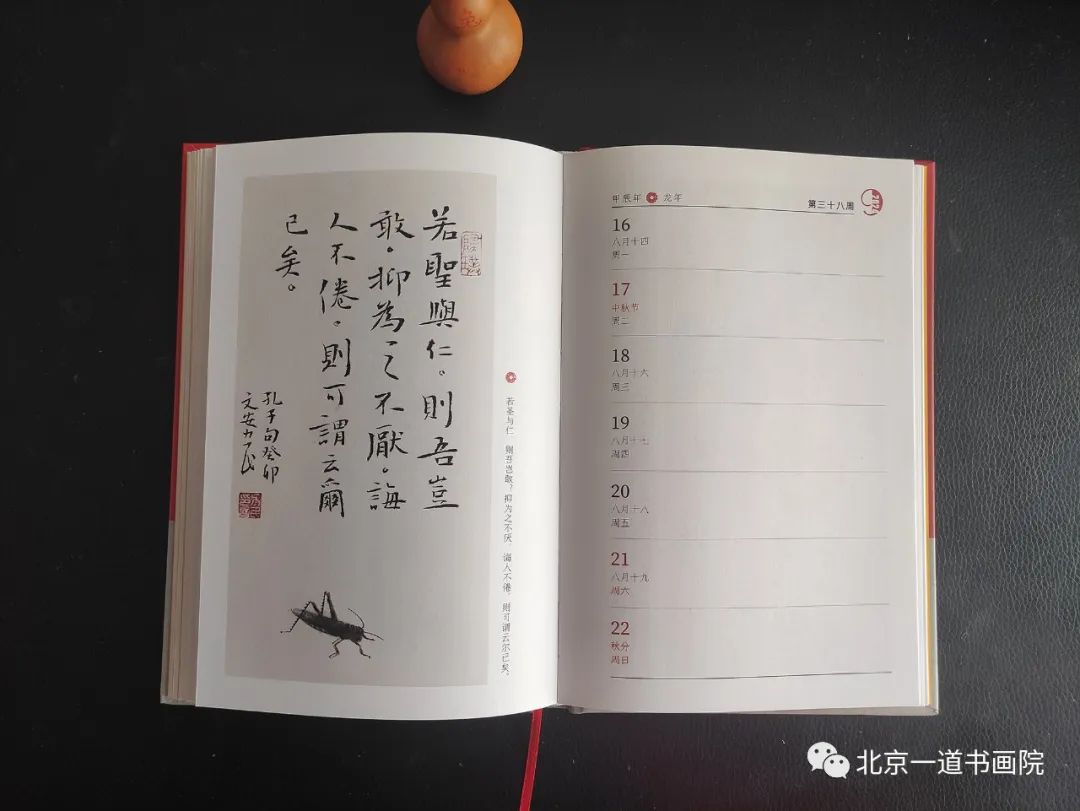 若聖與仁。則吾豈
敢。抑為之不厭。誨
人不倦。則可謂云爾
已矣。
孔子句癸卯
文安
若圣与仁 则吾岂敢？抑为之不厌 诲人不倦 则可谓云尔已矣。
甲辰年 龙年
第三十八周
16
八月十四
周一
17
中秋节
周二
18
八月十六
周三
19
八月十七
周四
20
八月十八
周五
21
八月十九
周六
22
秋分
周日
北京一道书画院